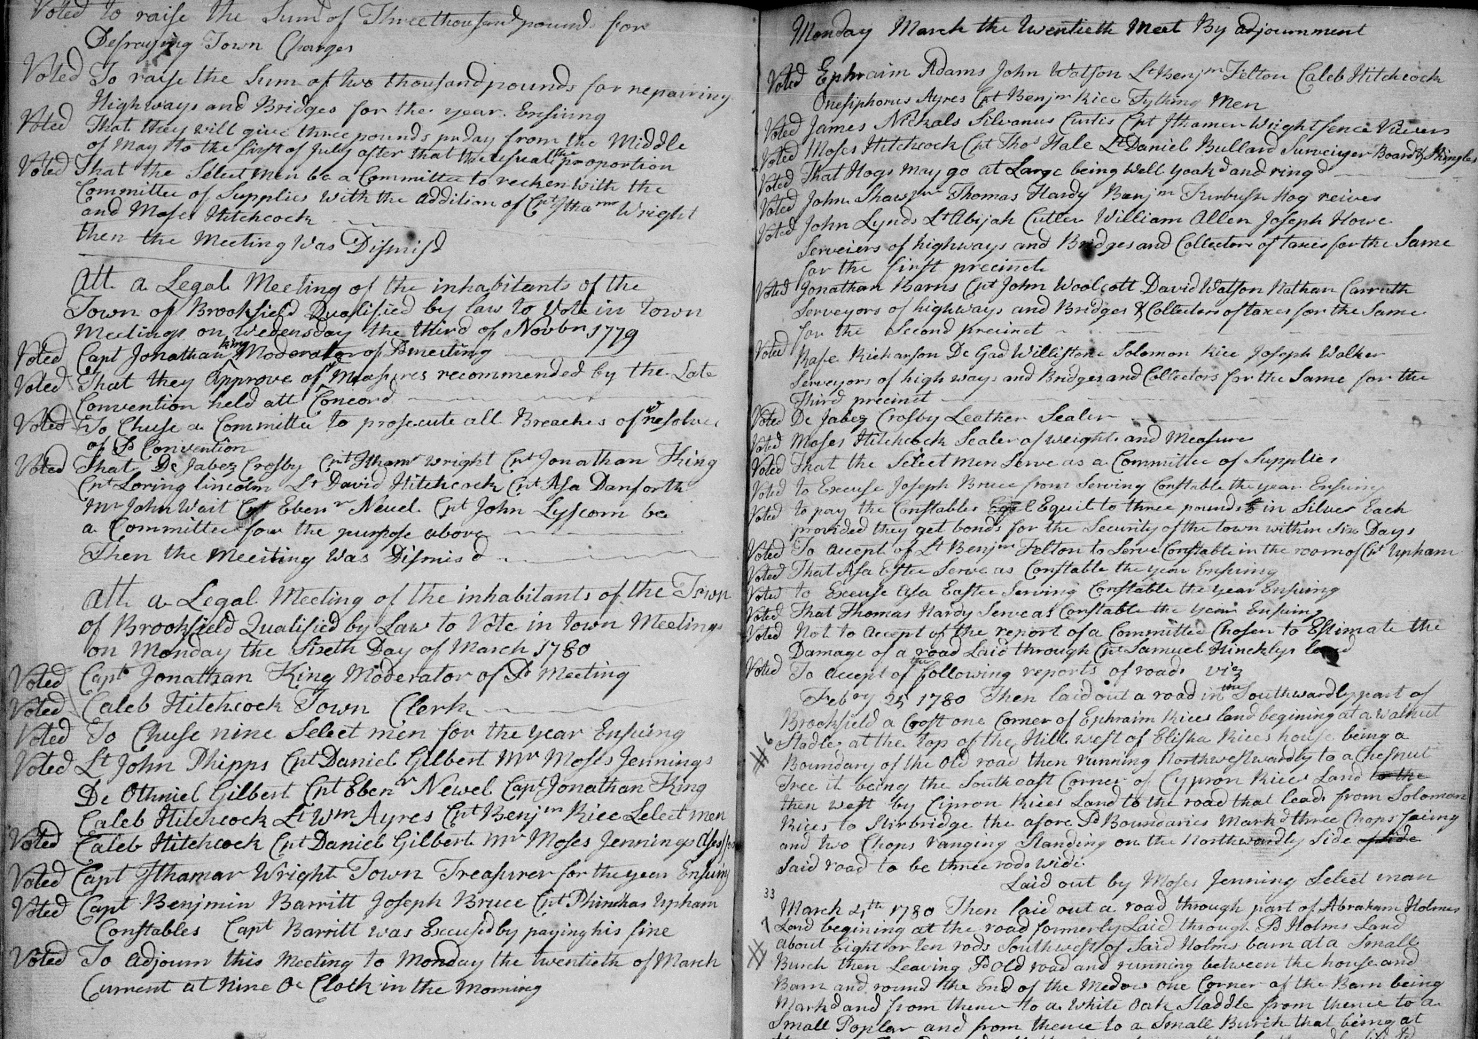 Voted to raise the Sum of Three thousand pounds for
Defraying Town Charges
Voted To raise the Sum of two thousand pounds for repairing
Highways and Bridges for the year Ensuing
Voted That they will give three pounds pr day from the Middle
of May to the first of July after that the usual proportion
Voted That the Select Men be a Committee to recken with the
Committee of Supplies with the addition of Cpt Ithamr Wright
and Moses Hitchcock
then the Meeting Was Dismisd
Att a Legal Meeting of the inhabitants of the
Town of Brookfield Qualified by law to Vote in town
Meetings on Wedensday the third of Novbr 1779
Voted Capt Jonathan King Moderator of sd meeting
Voted That they Approve of ye Measures recommended by the Late
Convention held att Concord
Voted To Chuse a Committee to prosecute all Breaches of ye resolves
of sd Convention
Voted That De Jabez Crosby Cpt Ithamr Wright Cpt Jonathan King
Cpt Loring Lincoln Lt David Hitchcock Cpt Asa Danforth
Mr John Wait Cpt Ebenr Newel Cpt John Lyscom be
a Committee for the purpose above
Then the Meeiting Was Dismisd
Att a Legal Meeting of the inhabitants of the Town
of Brookfield Qualified by Law to Vote in town Meetings
on Monday the Sixth Day of March 1780
Voted Capt Jonathan King Moderator of sd Meeting
Voted Caleb Hitchcock Town Clerk
Voted To Chuse nine Select men for the year Ensuing
Voted Lt John Phipps Cpt Daniel Gilbert Mr Moses Jennings
De Othniel Gilbert Cpt Ebenr Newel Capt Jonathan King
Caleb Hitchcock Lt Wm Ayres Cpt Benjmn Rice Select men
Voted Caleb Hitchcock Cpt Daniel Gilbert Mr Moses Jennings
Voted Capt Ithamar Wright Town Treasurer for the year Ensuing
Voted Capt Benjmin Barritt Joseph Bruce Cpt Phinehas Upham
Constables Capt Barritt was Excused by paying his fine
Voted To Adjourn this Meeting to Monday the twentieth of March
Current at Nine Oe Cloth in the Morning
Monday March the twentieth Meet By adjournment
Voted Ephraim Adams John Watson Lt Benjmn Felton Caleb Hitchcock
Onesiphorus Ayres Cpt Benjmn Rice Tything Men
Voted James Nichals Silvanus Curtis Cpt Ithamer Wright fence Viewers
Voted Moses Hitchcock Cpt Thos Hale Lt Daniel Bullard Surveiyer Board & Shingles
Voted That Hogs may go at Large being Well yoakd and ringd
Voted John Shaw Jnr Thomas Hardy Benjmn Furbush Hog reives
Voted John Lynds Lt Abijah Cutler William Allen Joseph Howe
Serveiers of highways and Bridges and Collectors of taxes for the Same
for the first precinct
Voted Jonathan Barns Cpt John Woolcott David Watson Nathan Carruth
Serveyors of highways and Bridges & Collectors of taxes for the Same
for the Second precinct
Voted Rafe Richarson De Gad Williston Solomon Rice Joseph Walker
Serveyors of high ways and Bridges and Collectors for the Same for the
Third precinct
Voted De Jabez Crosby Leather Sealer
Voted Moses Hitchcock Sealer of weights and Measure
Voted That the Select men Serve as a Committee of Supplies
Voted to Excuse Joseph Bruce from Serving Constable the year Ensuing
Voted to pay the Constables Equil Equil to three pounds in Silver Each
provided they get bonds for the Security of the town within six Days
Voted To accept of Lt Benjmn Felton to Serve Constable in the room of Cpt Upham
Voted That Asa Estee Serve as Constable the year Ensuing
Voted to Excuse Asa Eastee Serving Constable the year Ensuing
Voted That Thomas Hardy Serve as Constable the year Ensuing
Voted Not to accept of the report of a Committee Chosen to Estimate the
Damage of a road Laid through Cpt Samuel Hinckleys land
Voted To accept of the following reports of roads viz
Febry 25 1780 Then laid out a road in the Southwardly part of
Brookfield a Crost one Corner of Ephraim Rices land begining at a walnut
#6 Stadle at the top of the Hill west of Elisha Rices house being a
Boundary of the old road then running Northwestwardly to a Chesnut
Tree it being the South east Corner of Cypron Rices Land to the
then west by Cipron Rices Land to the road that leads from Solomon
Rices to Stirbridge the afore sd Boundaries Markd three Chops facing
and two Chops ranging Standing on the Northwardly Side of Side
Said road to be three rods wide
Laid out by Moses Jenning Select man
33
March 4th 1780 Then laid out a road through part of Abraham Holmes
Land begining at the road formerly Laid through sd Holms Land
#7 about Eight or ten rods Southwest of Said Holms barn at a Small
Burch then Leaving sd Old road and running between the house and
Barn and round the End of the Medow one Corner of the Barn being
Markd and from thence to a White Oak Staddle from thence to a
Small Poplar and from thence to a Small Burch that being at